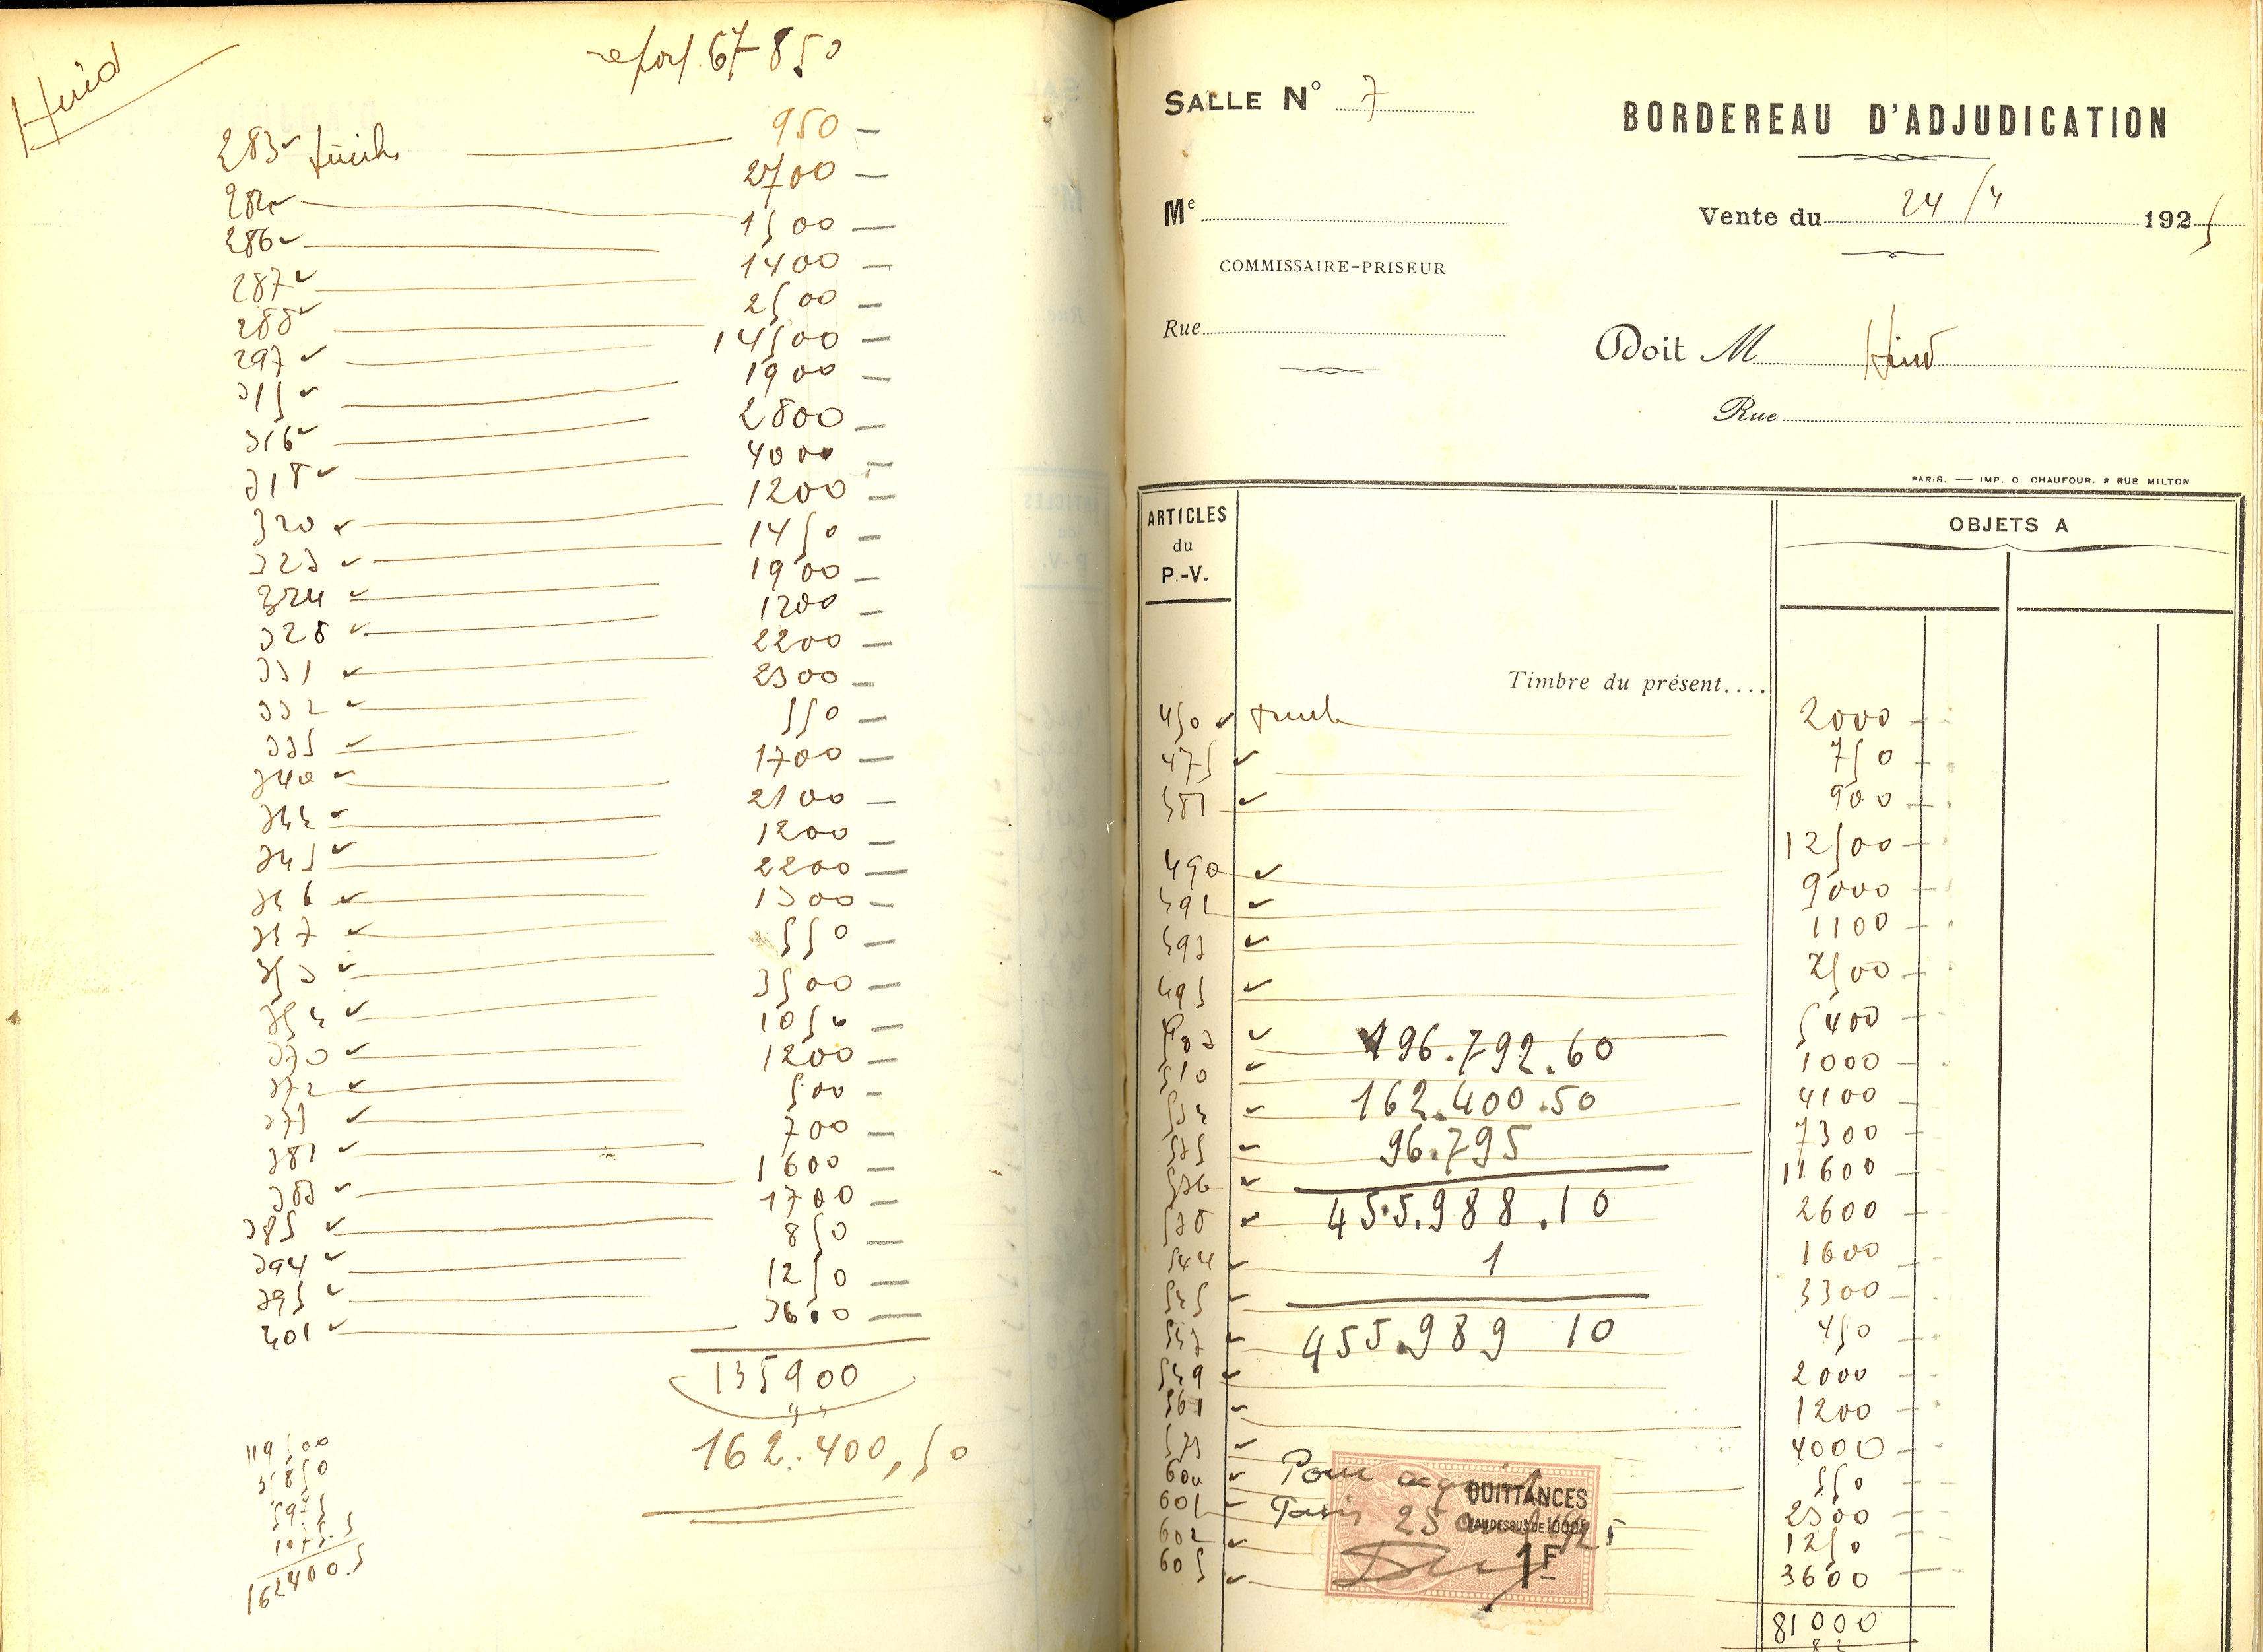 Hind
report 67850
283 950 —
284 2700 —
286 1500 —
287 1400 —
288 2500 —
297 14500 —
315 1900 —
316 2800 —
318 4000 —
320 1200 —
323 1450 —
324 1900 —
328 1200 —
331 2200 —
332 2300 —
335 550 —
340 1700 —
344 2100 —
345 1200 —
346 2200 —
347 1300 —
353 550 —
354 3500 —
370 1050 —
372 1200 —
375 500 —
381 700 —
383 1600 —
385 1700 —
394 850 —
395 1250 —
401 3600 —
135900
162.400,50
119500
31850
5975
1075.5
162400.5
SALLE N° 7
BORDEREAU D'ADJUDICATION
Me
Vente du 24/4 1925
COMMISSAIRE-PRISEUR
Rue
Doit M Hind
Rue
PARIS. — IMP. C. CHAUFOUR, 8 RUE MILTON
ARTICLES
du
P.-V.
OBJETS A
Timbre du présent....
450 2000
475 750
481 900
490 12500
491 9000
493 1100
495 2500
503 5400
510 1000
4100
7300
11600
2600
544 1600
545 3300
547 450
549 2000
561 1200
4000
600 550
601 2300
602 1250
605 3600
81000
196.792.60
162.400.50
96.795
455.988.10
1
455.989 10
Pour acquit
Paris 25 avril 1925
QUITTANCES
1F